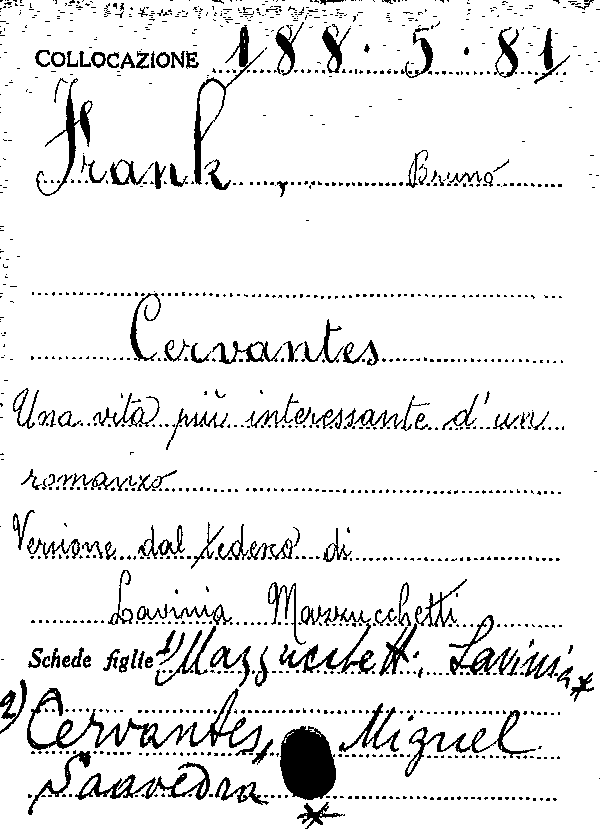 COLLOCAZIONE 188.5.81
Frank, Bruno
Cervantes
Una vita più interessante d'un
romanzo
Versione dal tedesco di
Lavinia Mazzucchetti
Schede figlie 1) Mazzucchetti, Lavinia*
2) Cervantes, Miguel
Saavedra *